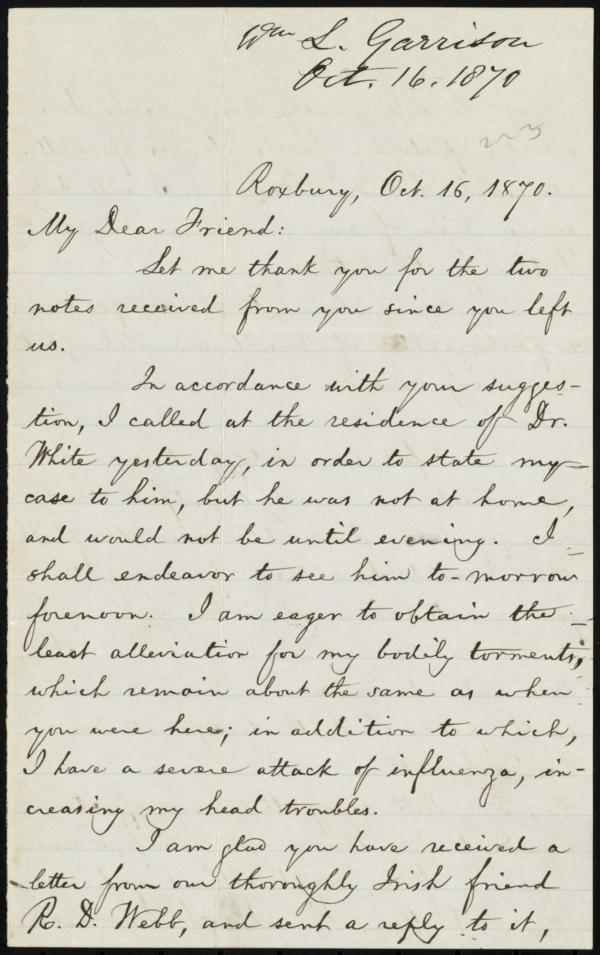 Wm L. Garrison
Oct. 16. 1870
223
Roxbury, Oct. 16, 1870.
My Dear Friend:
Let me thank you for the two
notes received from you since you left
us.
In accordance with your sugges-
tion, I called at the residence of Dr.
White yesterday, in order to state my
case to him, but he was not at home,
and would not be until evening. I
shall endeavor to see him to-morrow
forenoon. I am eager to obtain the
least alleviation for my bodily torments,
which remain about the same as when
you were here; in addition to which,
I have a severe attack of influenza, in-
creasing my head troubles.
I am glad you have received a
letter from our thoroughly Irish friend
R. D. Webb, and sent a reply to it,